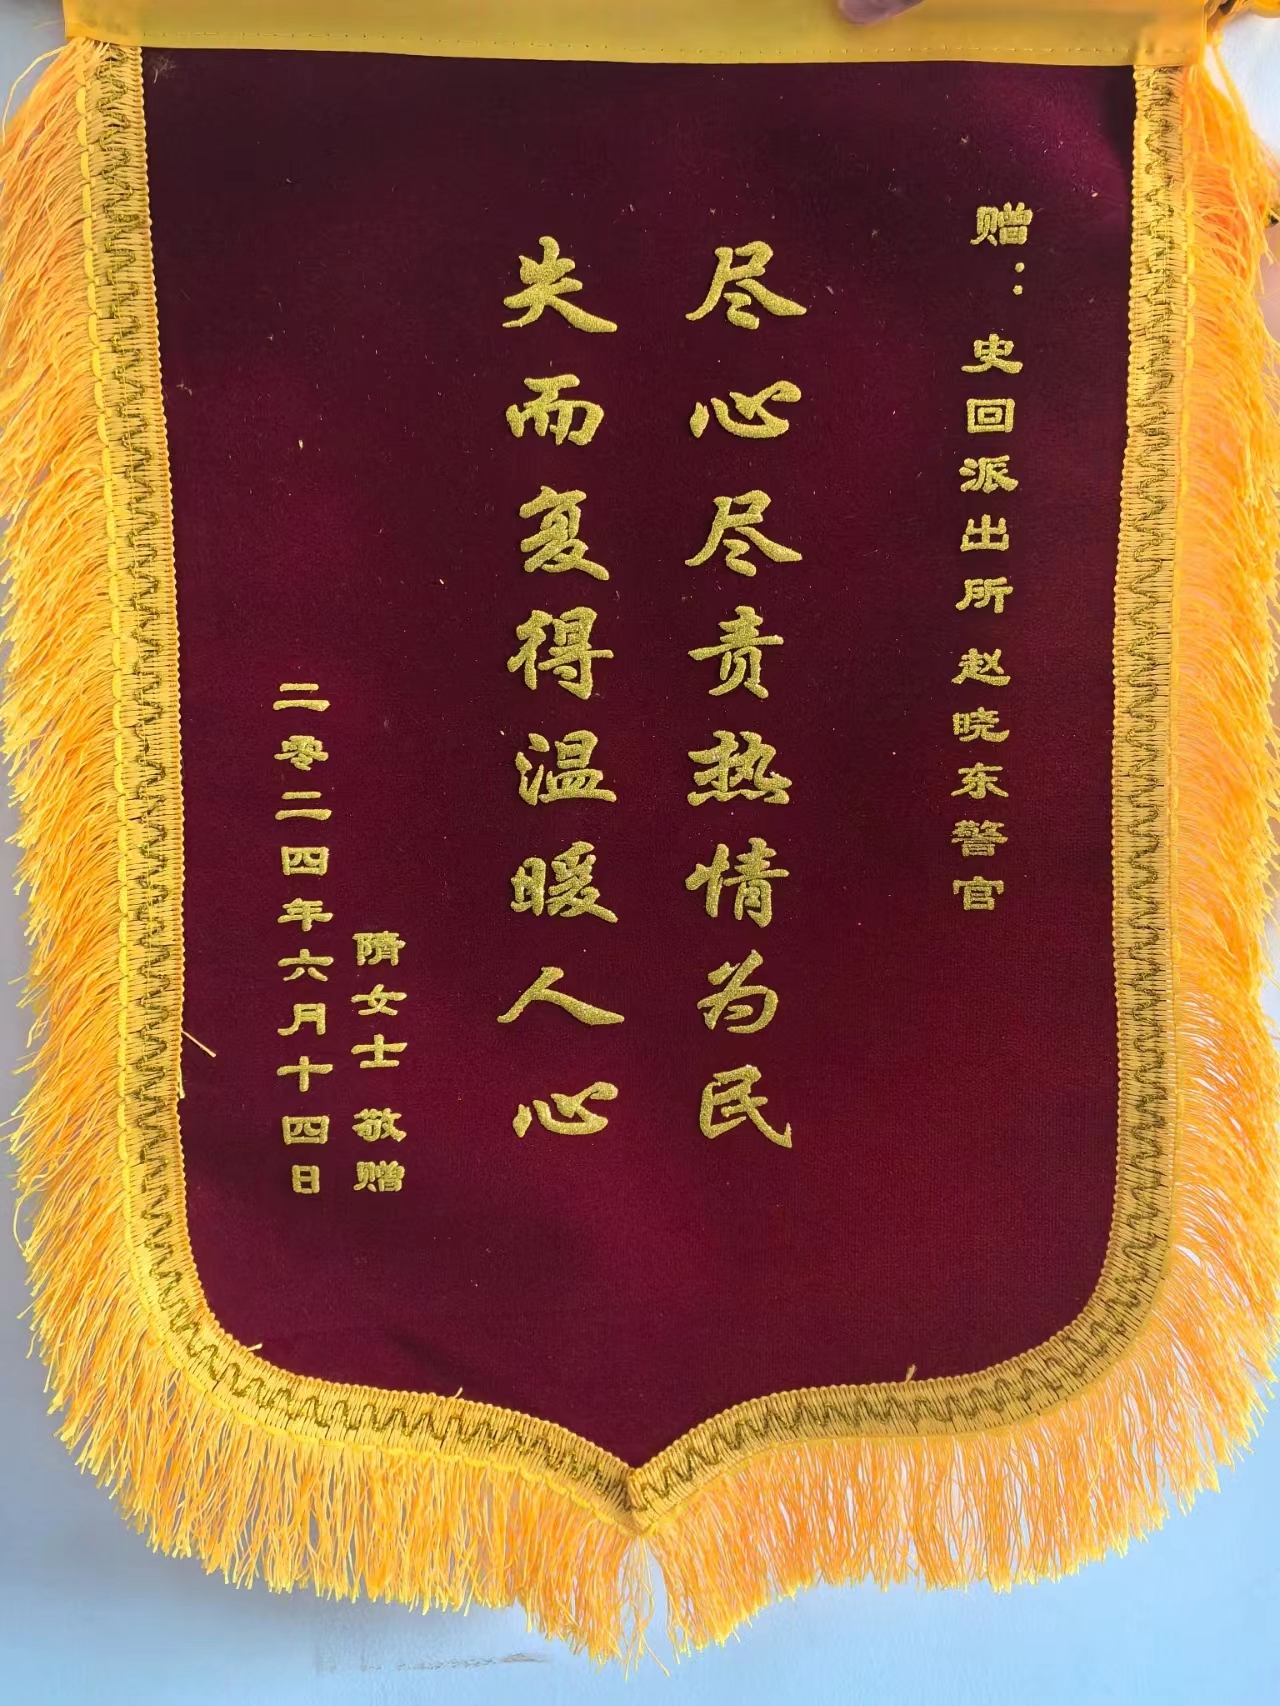 赠：史回派出所 赵晓东警官
尽心尽责热情为民
失而复得温暖人心
隋女士 敬赠
二零二四年六月十四日